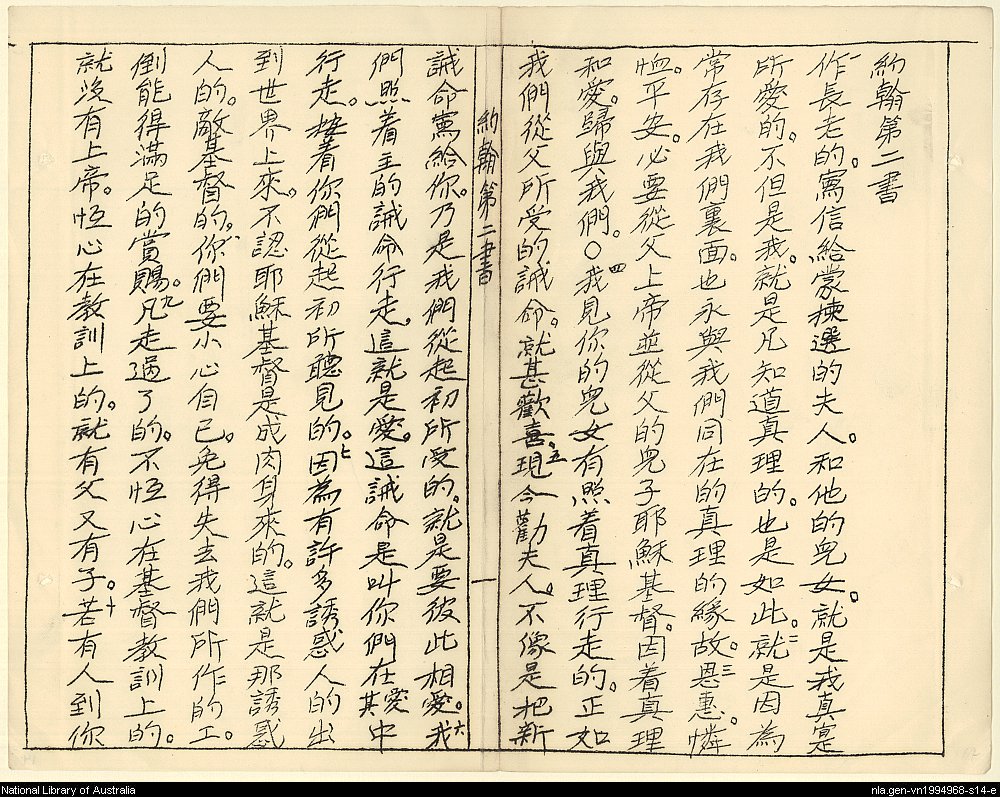 約翰第二書
作長老的。寫信給蒙揀選的夫人。和他的兒女。就是我真寔
所愛的。不但是我。就是凡知道真理的。也是如此。二就是因為
常存在我們裏面。也永與我們同在的真理的緣故。三恩惠。憐
恤。平安。必要從父上帝並從父的兒子耶穌基督。因着真理
和愛。歸與我們。〇四我見你的兒女有照着真理行走的。正如
我們從父所受的誡命。就甚歡喜。五現今勸夫人。不像是把新
約翰第二書 一
誡命寫給你。乃是我們從起初所受的。就是要彼此相愛。六我
們照着主的誡命行走。這就是愛。這誡命是叫你們在愛其中
行走。接着你們從起初所聽見的。七因為有許多誘惑人的出
到世界上來。不認耶穌基督是成肉身來的。這就是那誘惑
人的。敵基督的。八你們要小心自己。免得失去我們所作的工。
倒能得滿足的賞賜。九凡走過了的。不恒心在基督教訓上的。
就沒有上帝。恒心在教訓上的。就有父又有子。十若有人到你
National Library of Australia
nla.gen-vn1994968-s14-e